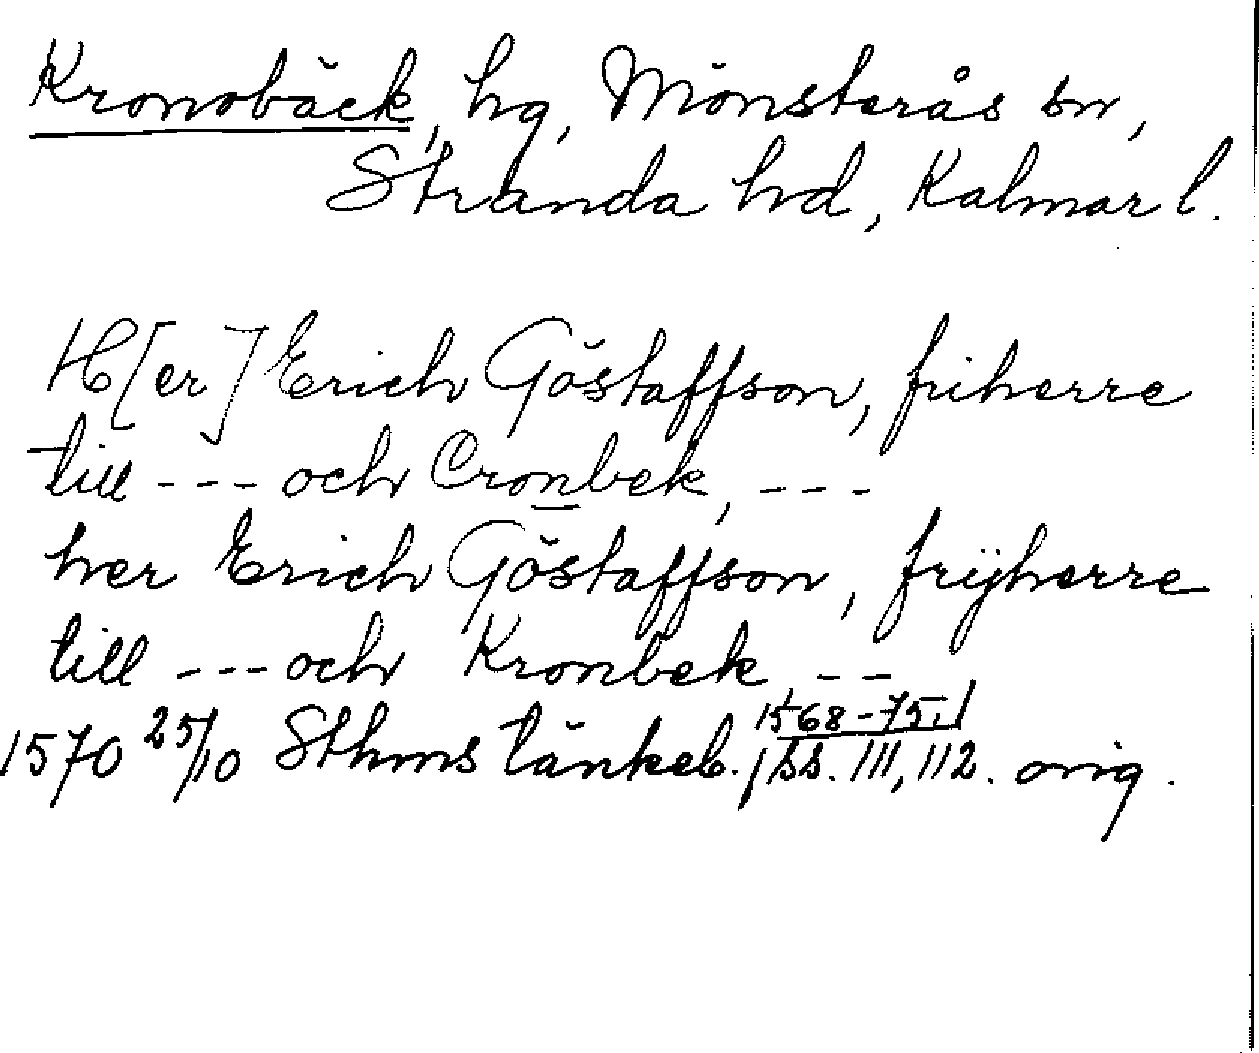 Kronobäck, hg, Mönsterås sn,
Stranda hd, Kalmar l.
H[er] Erich Göstaffson, friherre
till --- och Cronbek, ---
her Erich Göstaffson, frijherre
till --- och Kronbek --
1570 25/10 Sthms tänkeb. 1568-75, ss. 111, 112. orig.